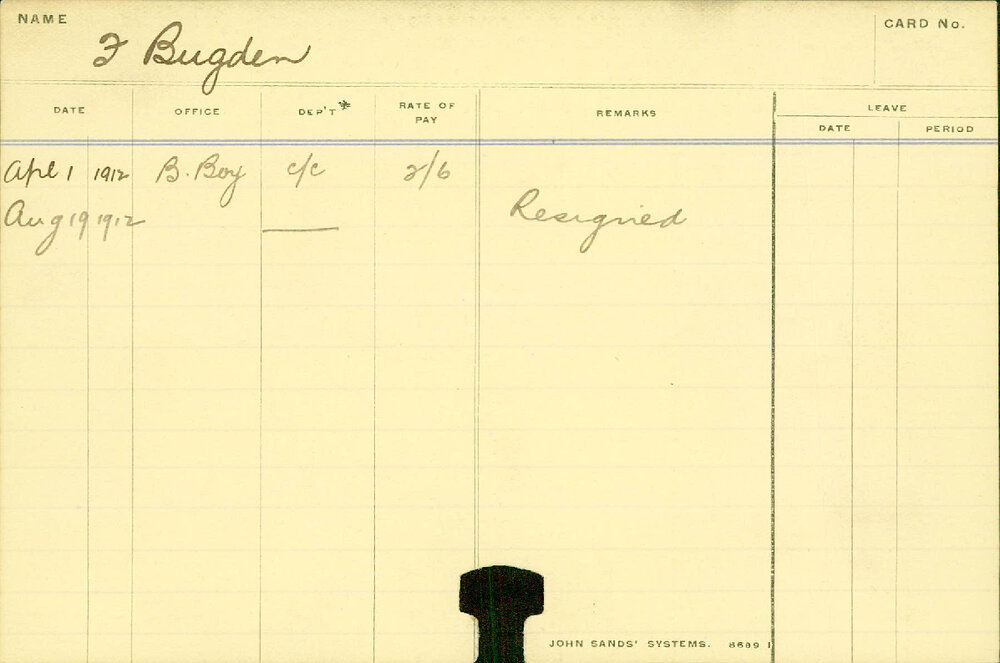 NAME
F Bugden
CARD No.
DATE OFFICE DEP'T* RATE OF PAY REMARKS LEAVE
DATE PERIOD
Apl 1 1912 B. Boy c/c 2/6
Aug 19 1912 Resigned
JOHN SANDS' SYSTEMS. 8689 1